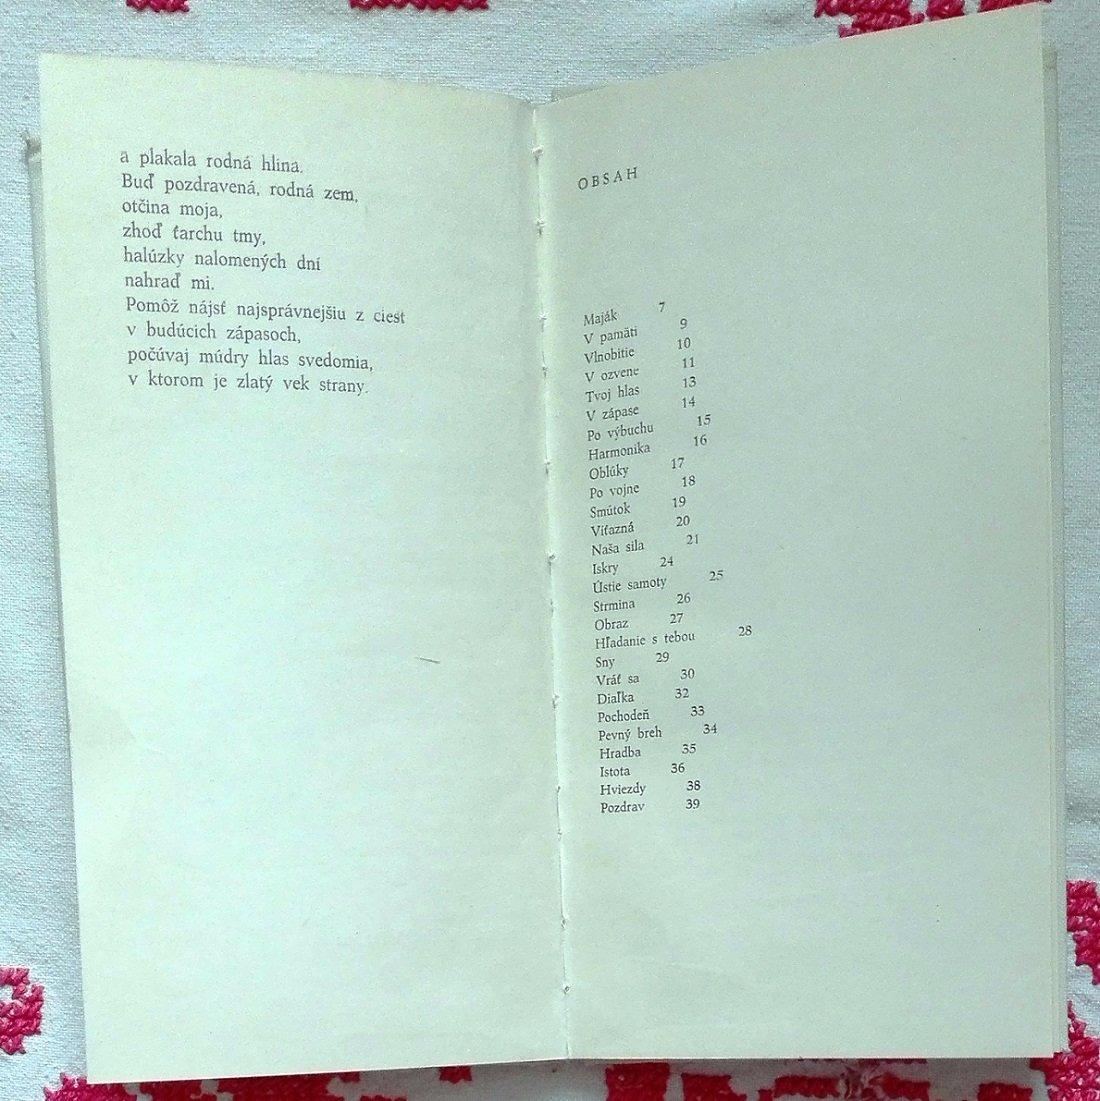 a plakala rodná hlina.
Buď pozdravená, rodná zem,
otčina moja,
zhoď ťarchu tmy,
halúzky nalomených dní
nahraď mi.
Pomôž nájsť najsprávnejšiu z ciest
v budúcich zápasoch,
počúvaj múdry hlas svedomia,
v ktorom je zlatý vek strany.
OBSAH
Maják 7
V pamäti 9
Vlnobitie 10
V ozvene 11
Tvoj hlas 13
V zápase 14
Po výbuchu 15
Harmonika 16
Oblúky 17
Po vojne 18
Smútok 19
Víťazná 20
Naša sila 21
Iskry 24
Ústie samoty 25
Strmina 26
Obraz 27
Hľadanie s tebou 28
Sny 29
Vráť sa 30
Diaľka 32
Pochodeň 33
Pevný breh 34
Hradba 35
Istota 36
Hviezdy 38
Pozdrav 39